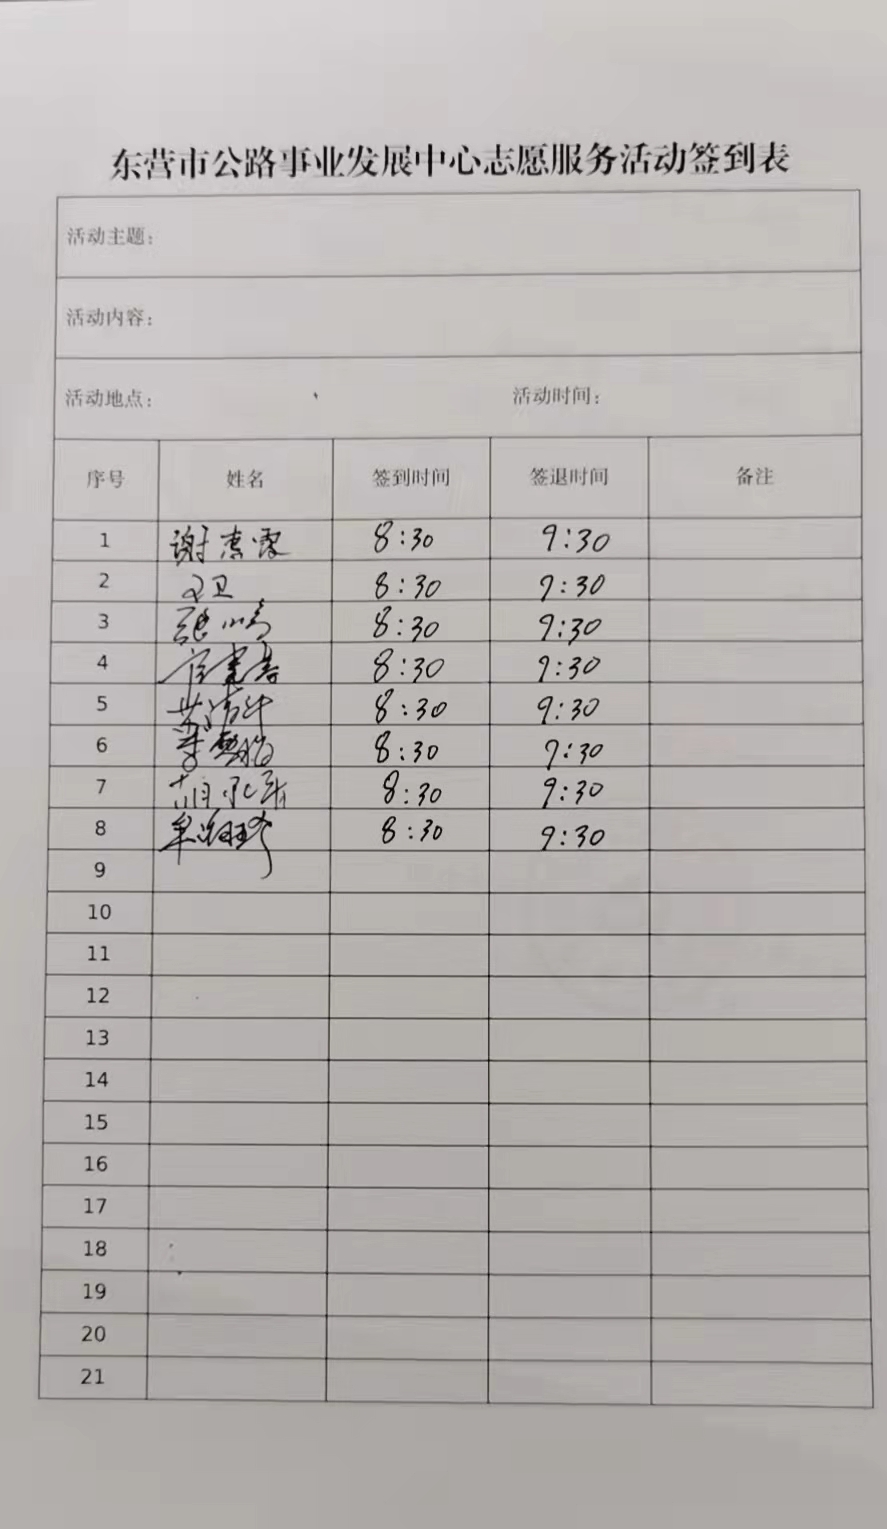 东营市公路事业发展中心志愿服务活动签到表
活动主题：
活动内容：
活动地点： 活动时间：
序号 姓名 签到时间 签退时间 备注
1 谢 8:30 9:30
2 卫 8:30 9:30
3 张 8:30 9:30
4 8:30 9:30
5 8:30 9:30
6 8:30 9:30
7 胡 8:30 9:30
8 8:30 9:30
9
10
11
12
13
14
15
16
17
18
19
20
21